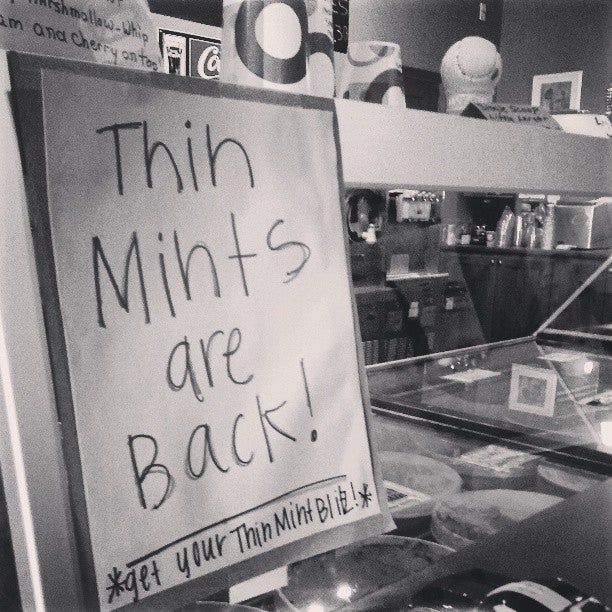 marshmallow-whip
and cherry on top
Thin
Mints
are
Back!
*get your Thin Mint Blitz!*